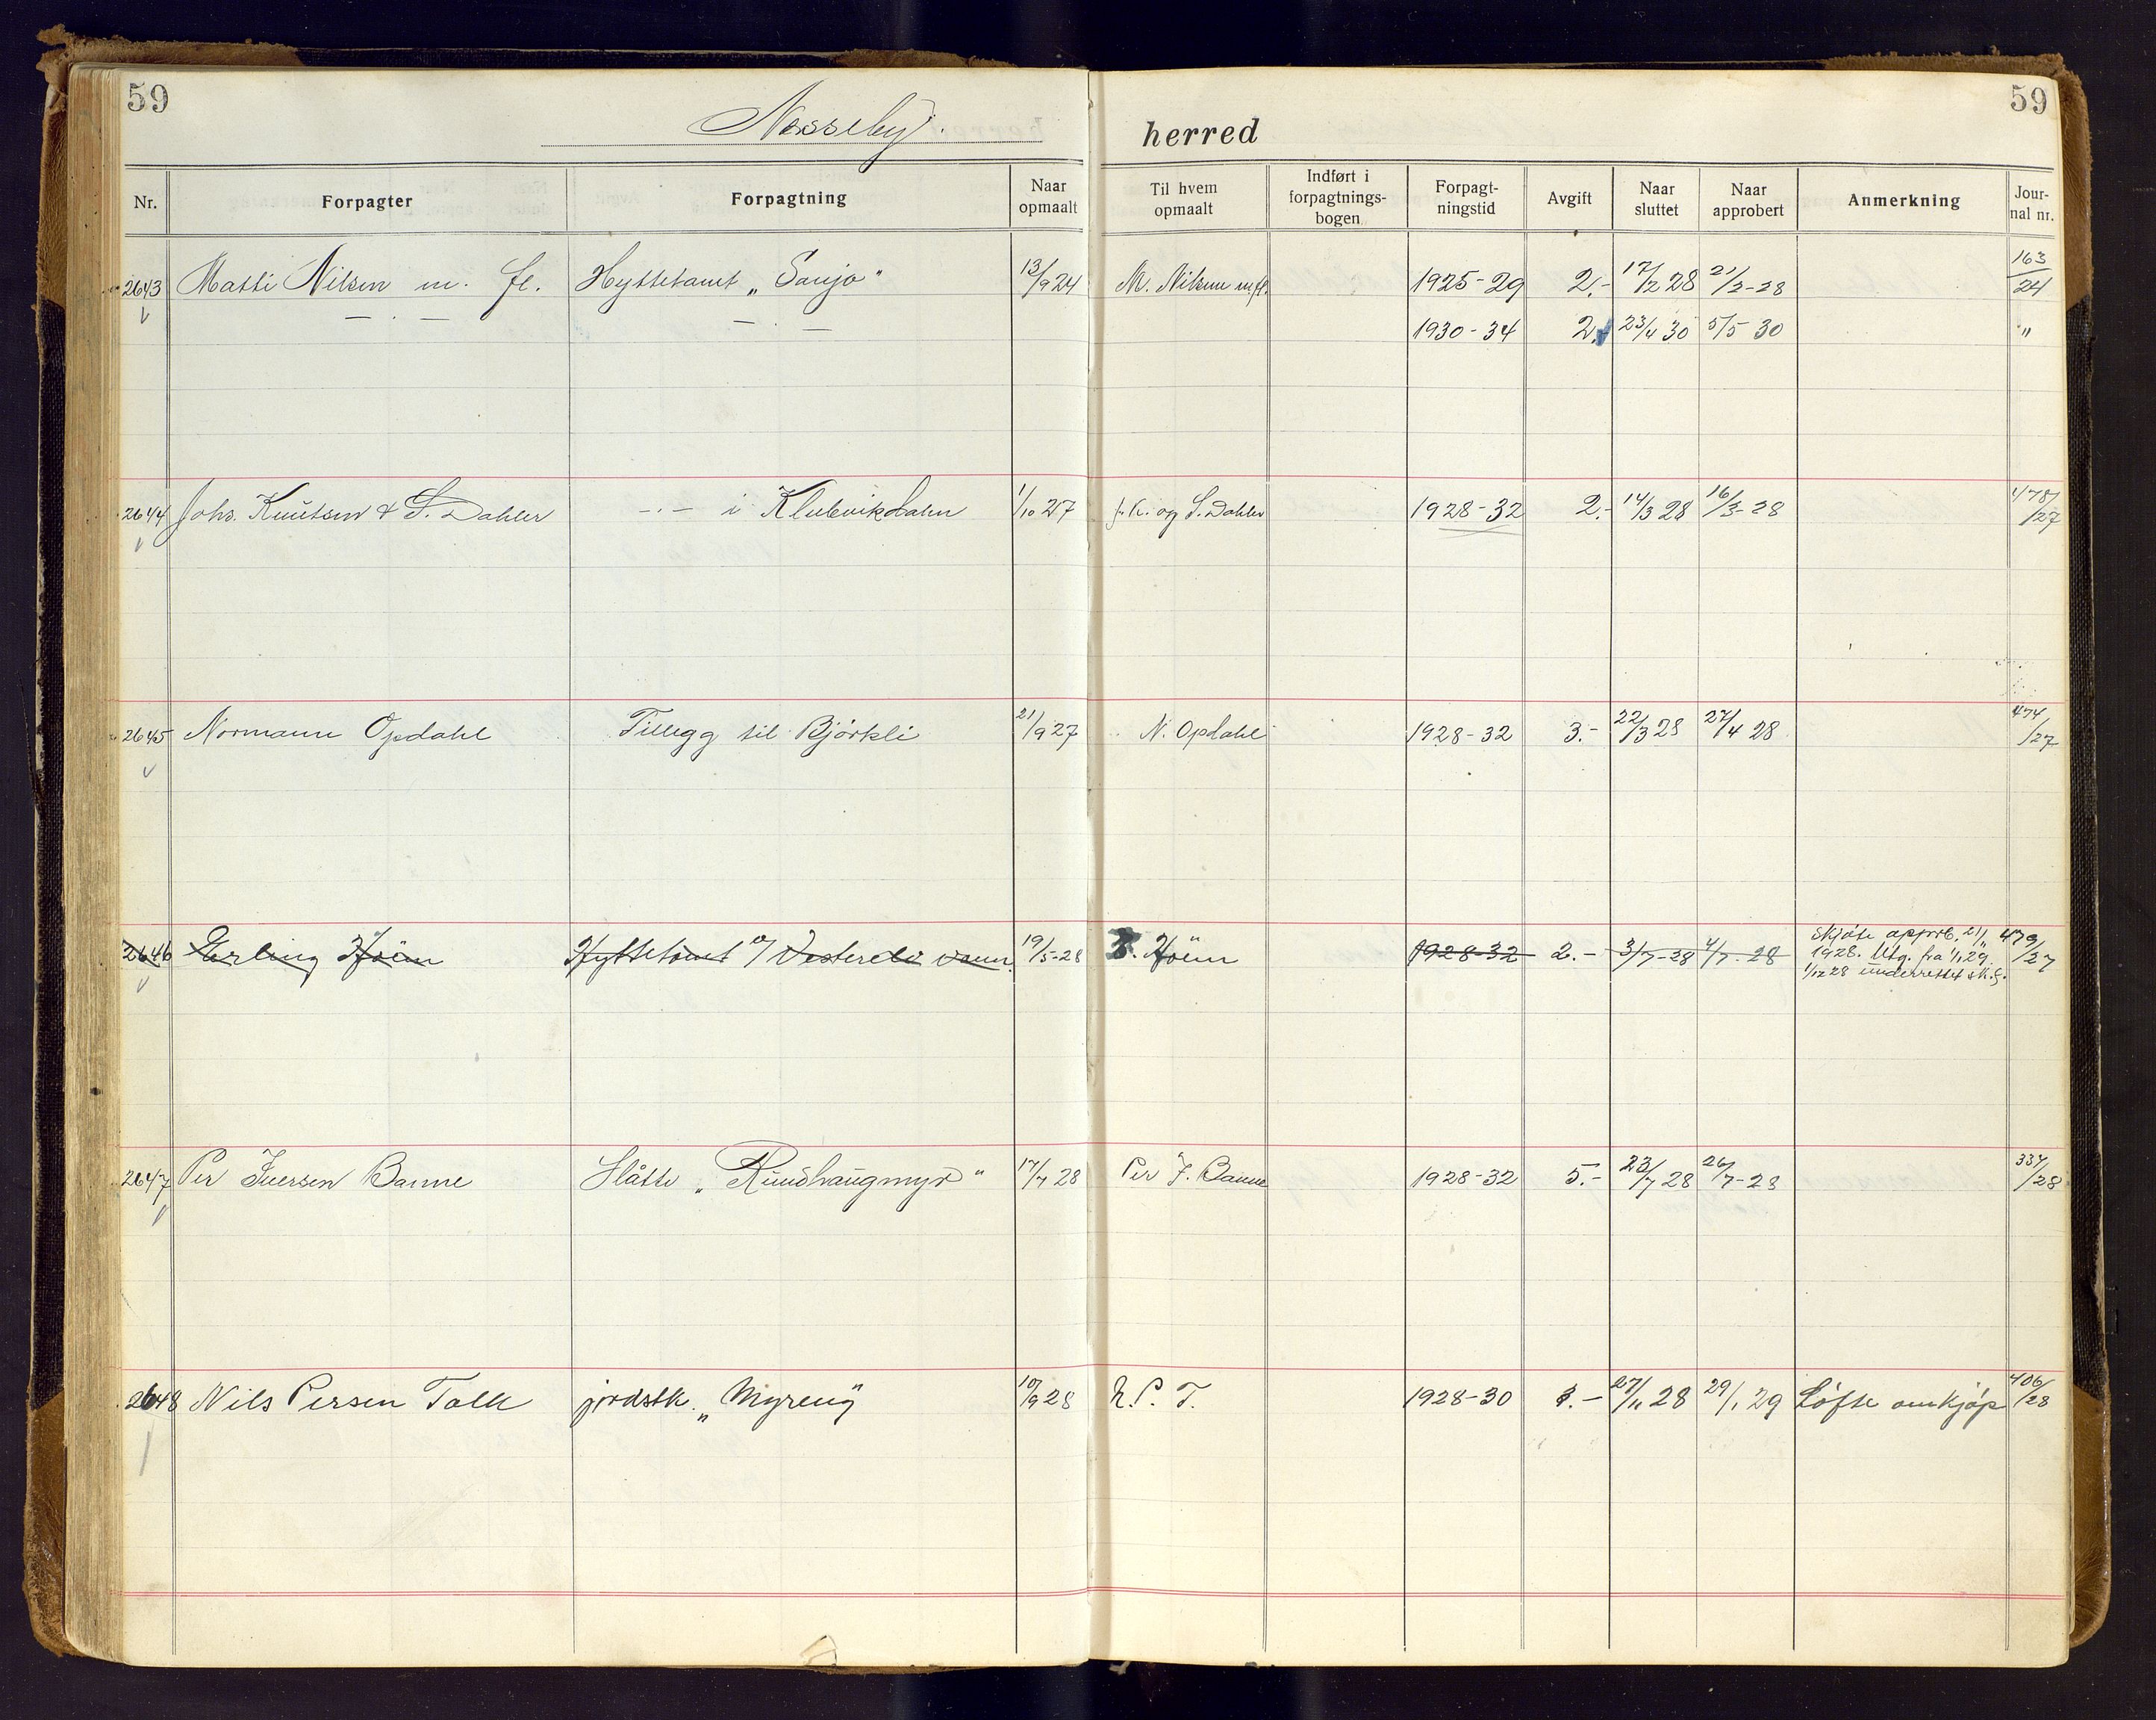 59
59
Nesseby.
herred
Nr. Forpagter Forpagtning Naar opmaalt Til hvem opmaalt Indført i forpagtnings-bogen Forpagt-ningstid Avgift Naar sluttet Naar approbert Anmerkning Jour-nal nr.
2643 Matti Nilsen m. fl. Hyttetomt „Sanjo" 13/9 24 M. Nilsen m/fl. 1925-29 2.- 17/2 28 21/2-28 163/24
— . — — . — 1930-34 2.- 23/4 30 5/5 30 "
2644 Johs. Knutsen & S. Dahler -.- i Klubvikdalen 1/10 27 J. K. og S. Dahler 1928-32 2.- 14/3 28 16/3-28 478/27
2645 Normann Opdahl Tillegg til Björkli 21/9 27 N. Opdahl 1928-32 3.- 22/3 28 27/4 28 474/27
2646 Erling Hoëm Hyttetomt v/ Vesterelv vann. 19/5-28 E. Hoëm 1928-32 2.- 3/7-28 4/7-28 Skjöte approb. 21/11 1928. Utg. fra 1/1 29. 1/12 28 underrettet sk.f. 479/27
2647 Per Iversen Banne Slåtte „Rundhaugmyr" 17/7 28 Per I. Banne 1928-32 5.- 23/7 28 26/7-28 337/28
2648 Nils Persen Talk jordstk. „Myreng" 10/9 28 N. P. T. 1928-30 27/11 28 29/1 29 Löfte om kjöp 406/28